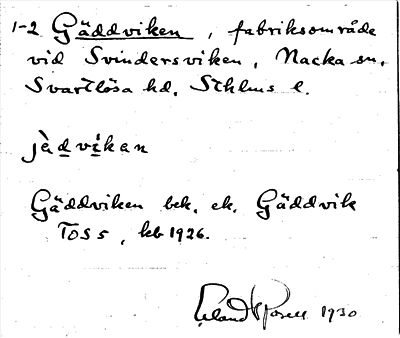 1-2 Gäddviken, fabriksområde
vid Svindersviken, Nacka sn,
Svartlösa hd, Sthlms l.
jàdvikan
Gäddviken bek. ek. Gäddvik
TOS 5, kb 1926.
Erland 1930